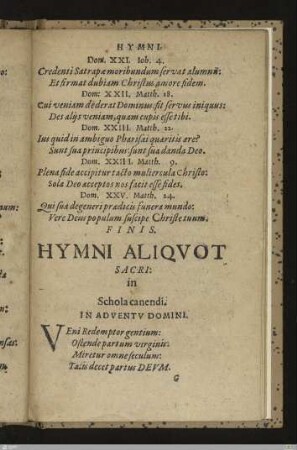 HYMNI
Dom. XXI. Ioh. 4.
Credenti Satrapæ moribundum servat alumnũ:
Et firmat dubiam Christus amore fidem.
Dom: XXII. Matth. 18.
Cui veniam dederat Dominus fit servus iniquus:
Des aliis veniam, quam cupis esse tibi.
Dom. XXIII. Matth. 22.
Ius quid in ambiguo Pharisæi quæritis ære?
Sunt sua principibus: sunt sua danda Deo.
Dom. XXIIII. Matth. 9.
Plena fide accipitur tacto muliercula Christo:
Sola Deo acceptos nos facit esse fides.
Dom. XXV. Matth. 24.
Qui sua degeneri prædicis funera mundo:
Vere Deus populum suscipe Christe tuum.
FINIS.
HYMNI ALIQVOT
SACRI:
in
Schola canendi.
IN ADVENTV DOMINI.
VEni Redemptor gentium:
Ostende partum virginis:
Miretur omne seculum:
Talis decet partus DEVM.
G